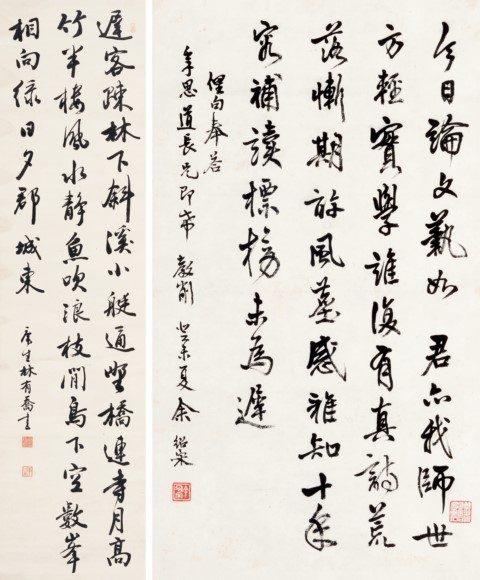 今日論文藝如君亦我師世
方輕實學誰復有真詩荒
落慚期許風塵感雅知十年
容補讀標榜未為遲
俚句奉答
思道長兄即希教削 癸未夏余紹宋
遲客疎林下斜溪小艇通野橋連寺月高
竹半樓風水靜魚吹浪枝閒鳥下空數峯
相向綠日夕郡城東
生林有喬書